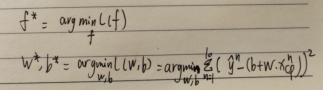 f* = arg min_f L(f)
w*, b* = arg min_{w,b} L(w,b) = arg min_{w,b} Σ_{n=1}^{10} ( ŷ^n - (b + w · x_{cp}^n) )^2